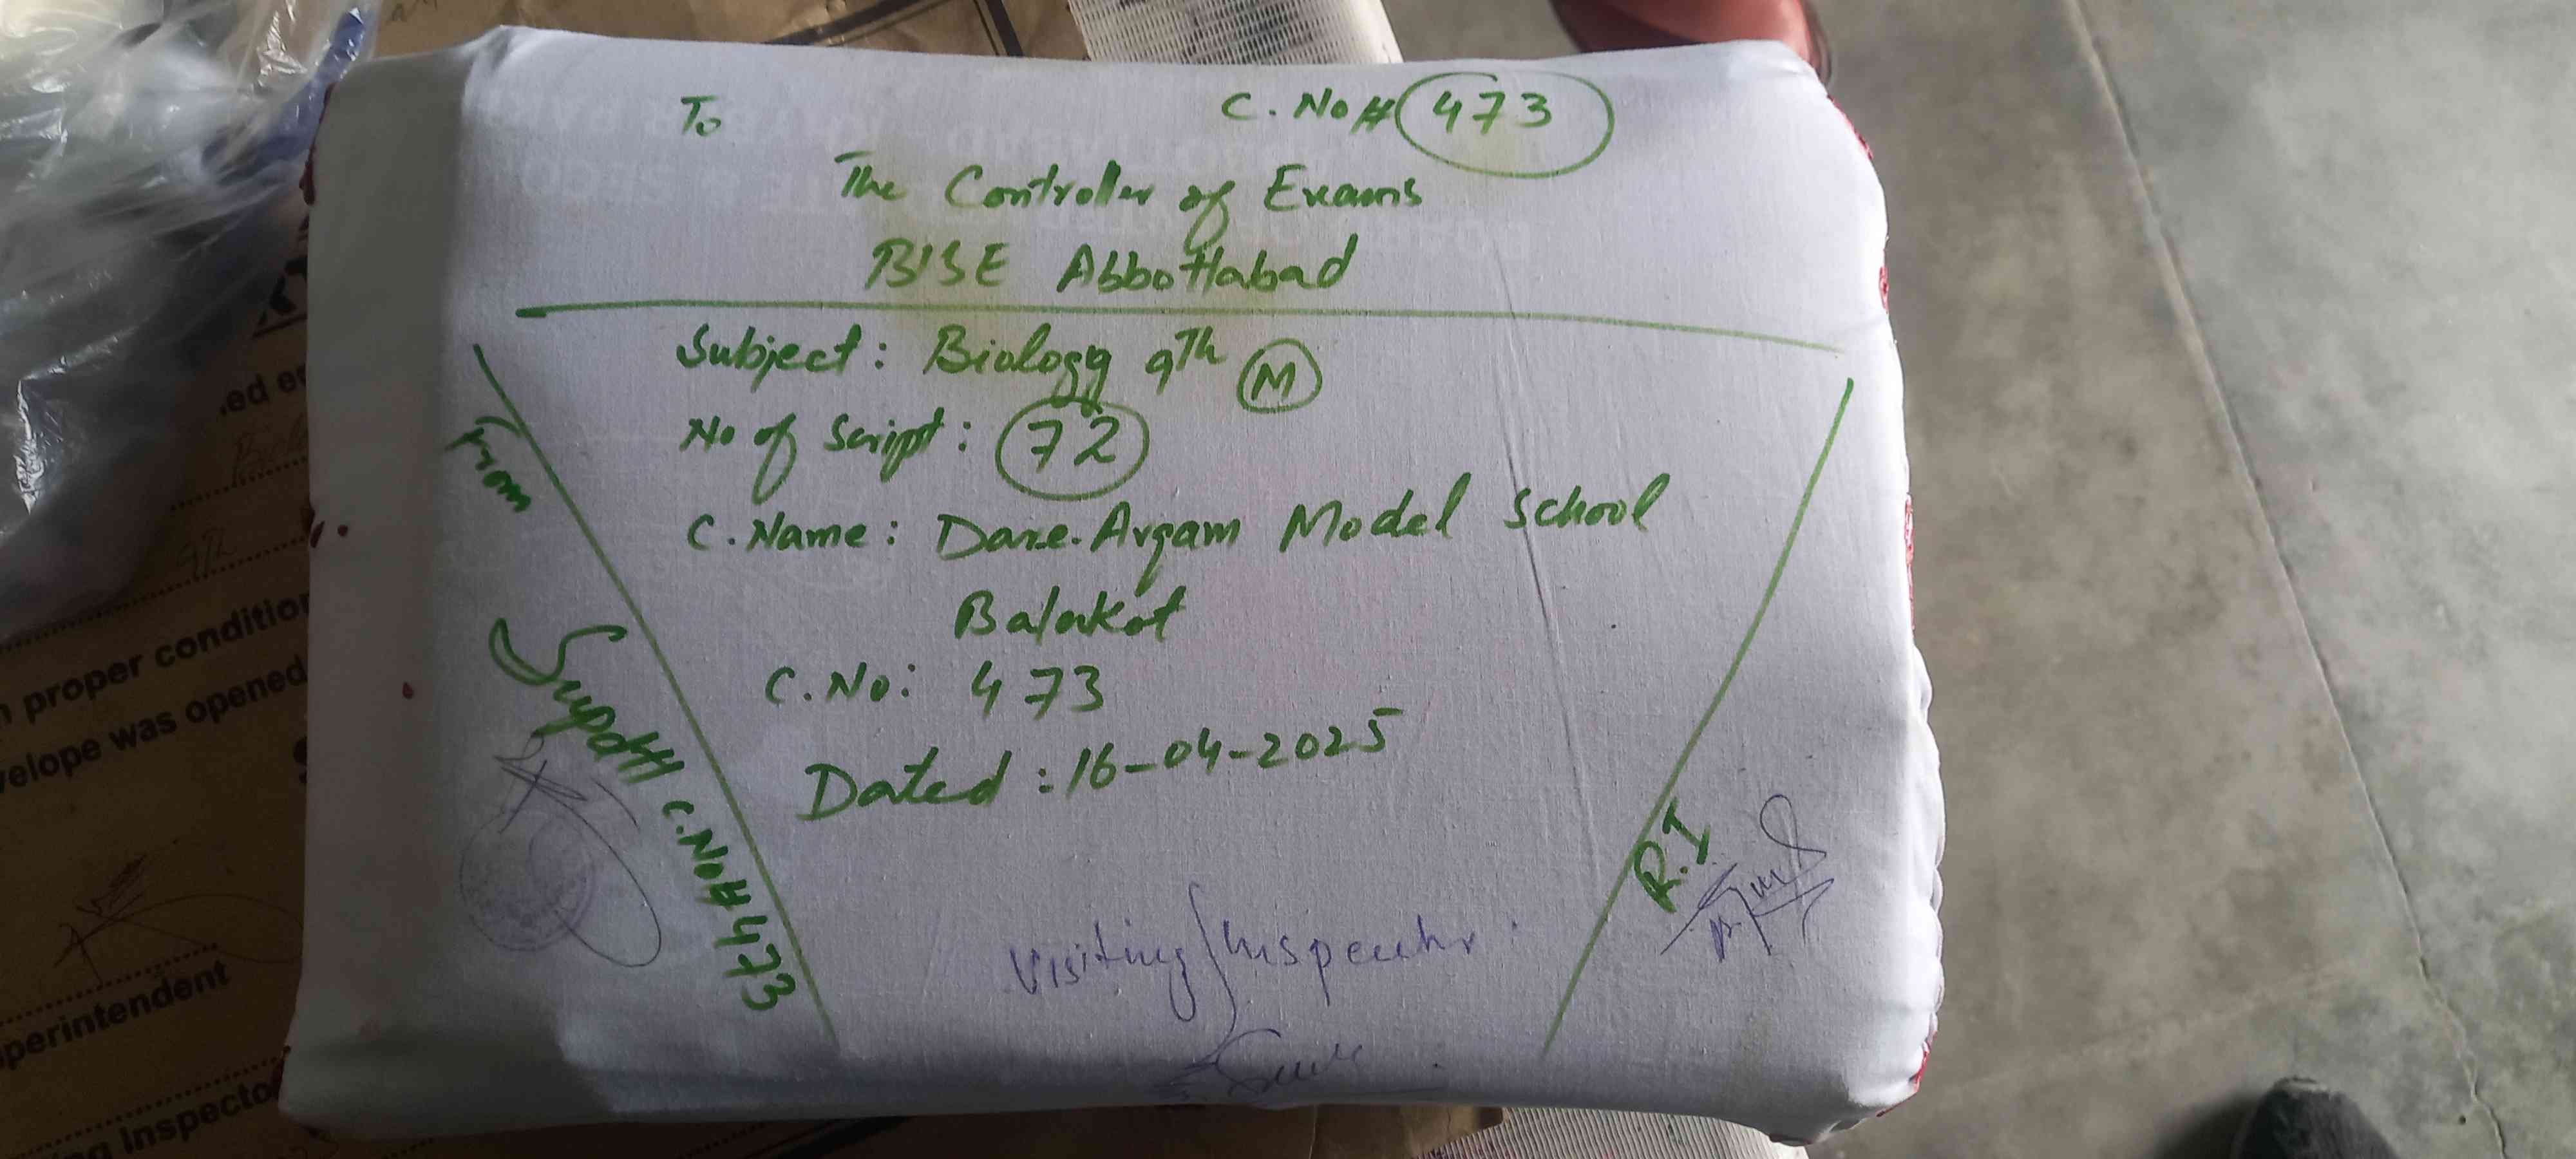 To
C. No # 473
The Controller of Exams
BISE Abbottabad
Subject: Biology 9Th M
No of Script: 72
C. Name: Dar.e. Arqam Model School
Balakot
C. No: 473
Dated: 16-04-2025
From
Supdtt C. No # 473
R.I
Visiting Inspector:
ed en
9th
n proper condition
velope was opened
perintendent
ng Inspector